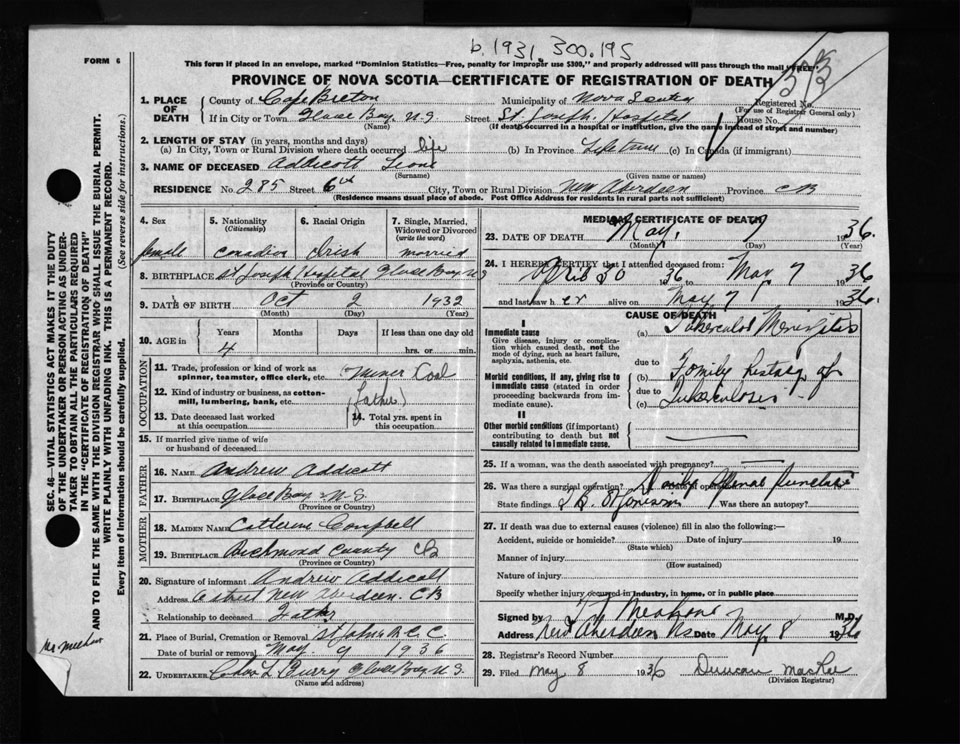 b. 1931. 300.195
FORM 6
This form if placed in an envelope, marked "Dominion Statistics—Free, penalty for improper use $300," and properly addressed will pass through the mail "FREE"
PROVINCE OF NOVA SCOTIA—CERTIFICATE OF REGISTRATION OF DEATH
1. PLACE OF DEATH
County of Cape Breton Municipality of Nova Scotia Registered No.
(For use of Registrar General only)
If in City or Town Glace Bay, N.S Street St. Joseph. Hospital House No.
(Name) (If death occurred in a hospital or institution, give the name instead of street and number)
2. LENGTH OF STAY (in years, months and days)
(a) In City, Town or Rural Division where death occurred life (b) In Province Life Time (c) In Canada (if immigrant)
3. NAME OF DECEASED Addicott Leone
(Surname) (Given name or names)
RESIDENCE No. 285 Street 6th City, Town or Rural Division New Aberdeen Province C B
(Residence means usual place of abode. Post Office Address for residents in rural parts not sufficient)
4. Sex
5. Nationality (Citizenship)
6. Racial Origin
7. Single, Married, Widowed or Divorced (write the word)
female canadian Irish married
8. BIRTHPLACE St Joseph Hospital Glace Bay NS
(Province or Country)
9. DATE OF BIRTH Oct 2 1932
(Month) (Day) (Year)
10. AGE in
Years Months Days If less than one day old
4 hrs. or min.
OCCUPATION
11. Trade, profession or kind of work as spinner, teamster, office clerk, etc. miner Coal
12. Kind of industry or business, as cotton-mill, lumbering, bank, etc. (father)
13. Date deceased last worked at this occupation
14. Total yrs. spent in this occupation
15. If married give name of wife or husband of deceased
FATHER
16. NAME Andrew Addicott
17. BIRTHPLACE Glace Bay N.S
(Province or Country)
MOTHER
18. MAIDEN NAME Catherine Campbell
19. BIRTHPLACE Richmond County CB
(Province or Country)
20. Signature of informant Andrew Addicott
Address 6 street New Aberdeen. C B
Relationship to deceased Father
21. Place of Burial, Cremation or Removal St Johns R. C. C.
Date of burial or removal May. 9 1936
22. UNDERTAKER Chas L Curry Glace Bay N.S.
(Name and address)
MEDICAL CERTIFICATE OF DEATH
23. DATE OF DEATH May, 7 1936.
(Month) (Day) (Year)
24. I HEREBY CERTIFY that I attended deceased from:
April 30 1936 May 7 1936
and last saw h er alive on May 7 1936.
CAUSE OF DEATH
I
Immediate cause
Give disease, injury or complication which caused death, not the mode of dying, such as heart failure, asphyxia, asthenia, etc.
(a) Tubercular Meningitis
due to
Morbid conditions, if any, giving rise to immediate cause (stated in order proceeding backwards from immediate cause).
(b) Family history of
due to
(c) Tuberculosis
II
Other morbid conditions (if important) contributing to death but not causally related to immediate cause.
25. If a woman, was the death associated with pregnancy?
26. Was there a surgical operation? Date of operation Spinal puncture
State findings Was there an autopsy?
27. If death was due to external causes (violence) fill in also the following:—
Accident, suicide or homicide? Date of injury 19
(State which)
Manner of injury
(How sustained)
Nature of injury
Specify whether injury occurred in industry, in home, or in public place
Signed by M.D.
Address New Aberdeen N.S Date May, 8 1936
28. Registrar's Record Number
29. Filed May 8 1936 Duncan MacRae
(Division Registrar)
SEC. 46—VITAL STATISTICS ACT MAKES IT THE DUTY
OF THE UNDERTAKER OR PERSON ACTING AS UNDER-
TAKER TO OBTAIN ALL THE PARTICULARS REQUIRED
IN THE "CERTIFICATE OF REGISTRATION OF DEATH"
AND TO FILE THE SAME WITH THE DIVISION REGISTRAR WHO SHALL ISSUE THE BURIAL PERMIT.
WRITE PLAINLY WITH UNFADING INK. THIS IS A PERMANENT RECORD.
Every item of Information should be carefully supplied. (See reverse side for instructions.)